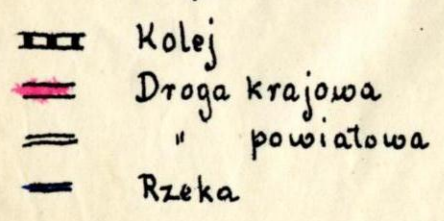 Kolej
Droga krajowa
" powiatowa
Rzeka